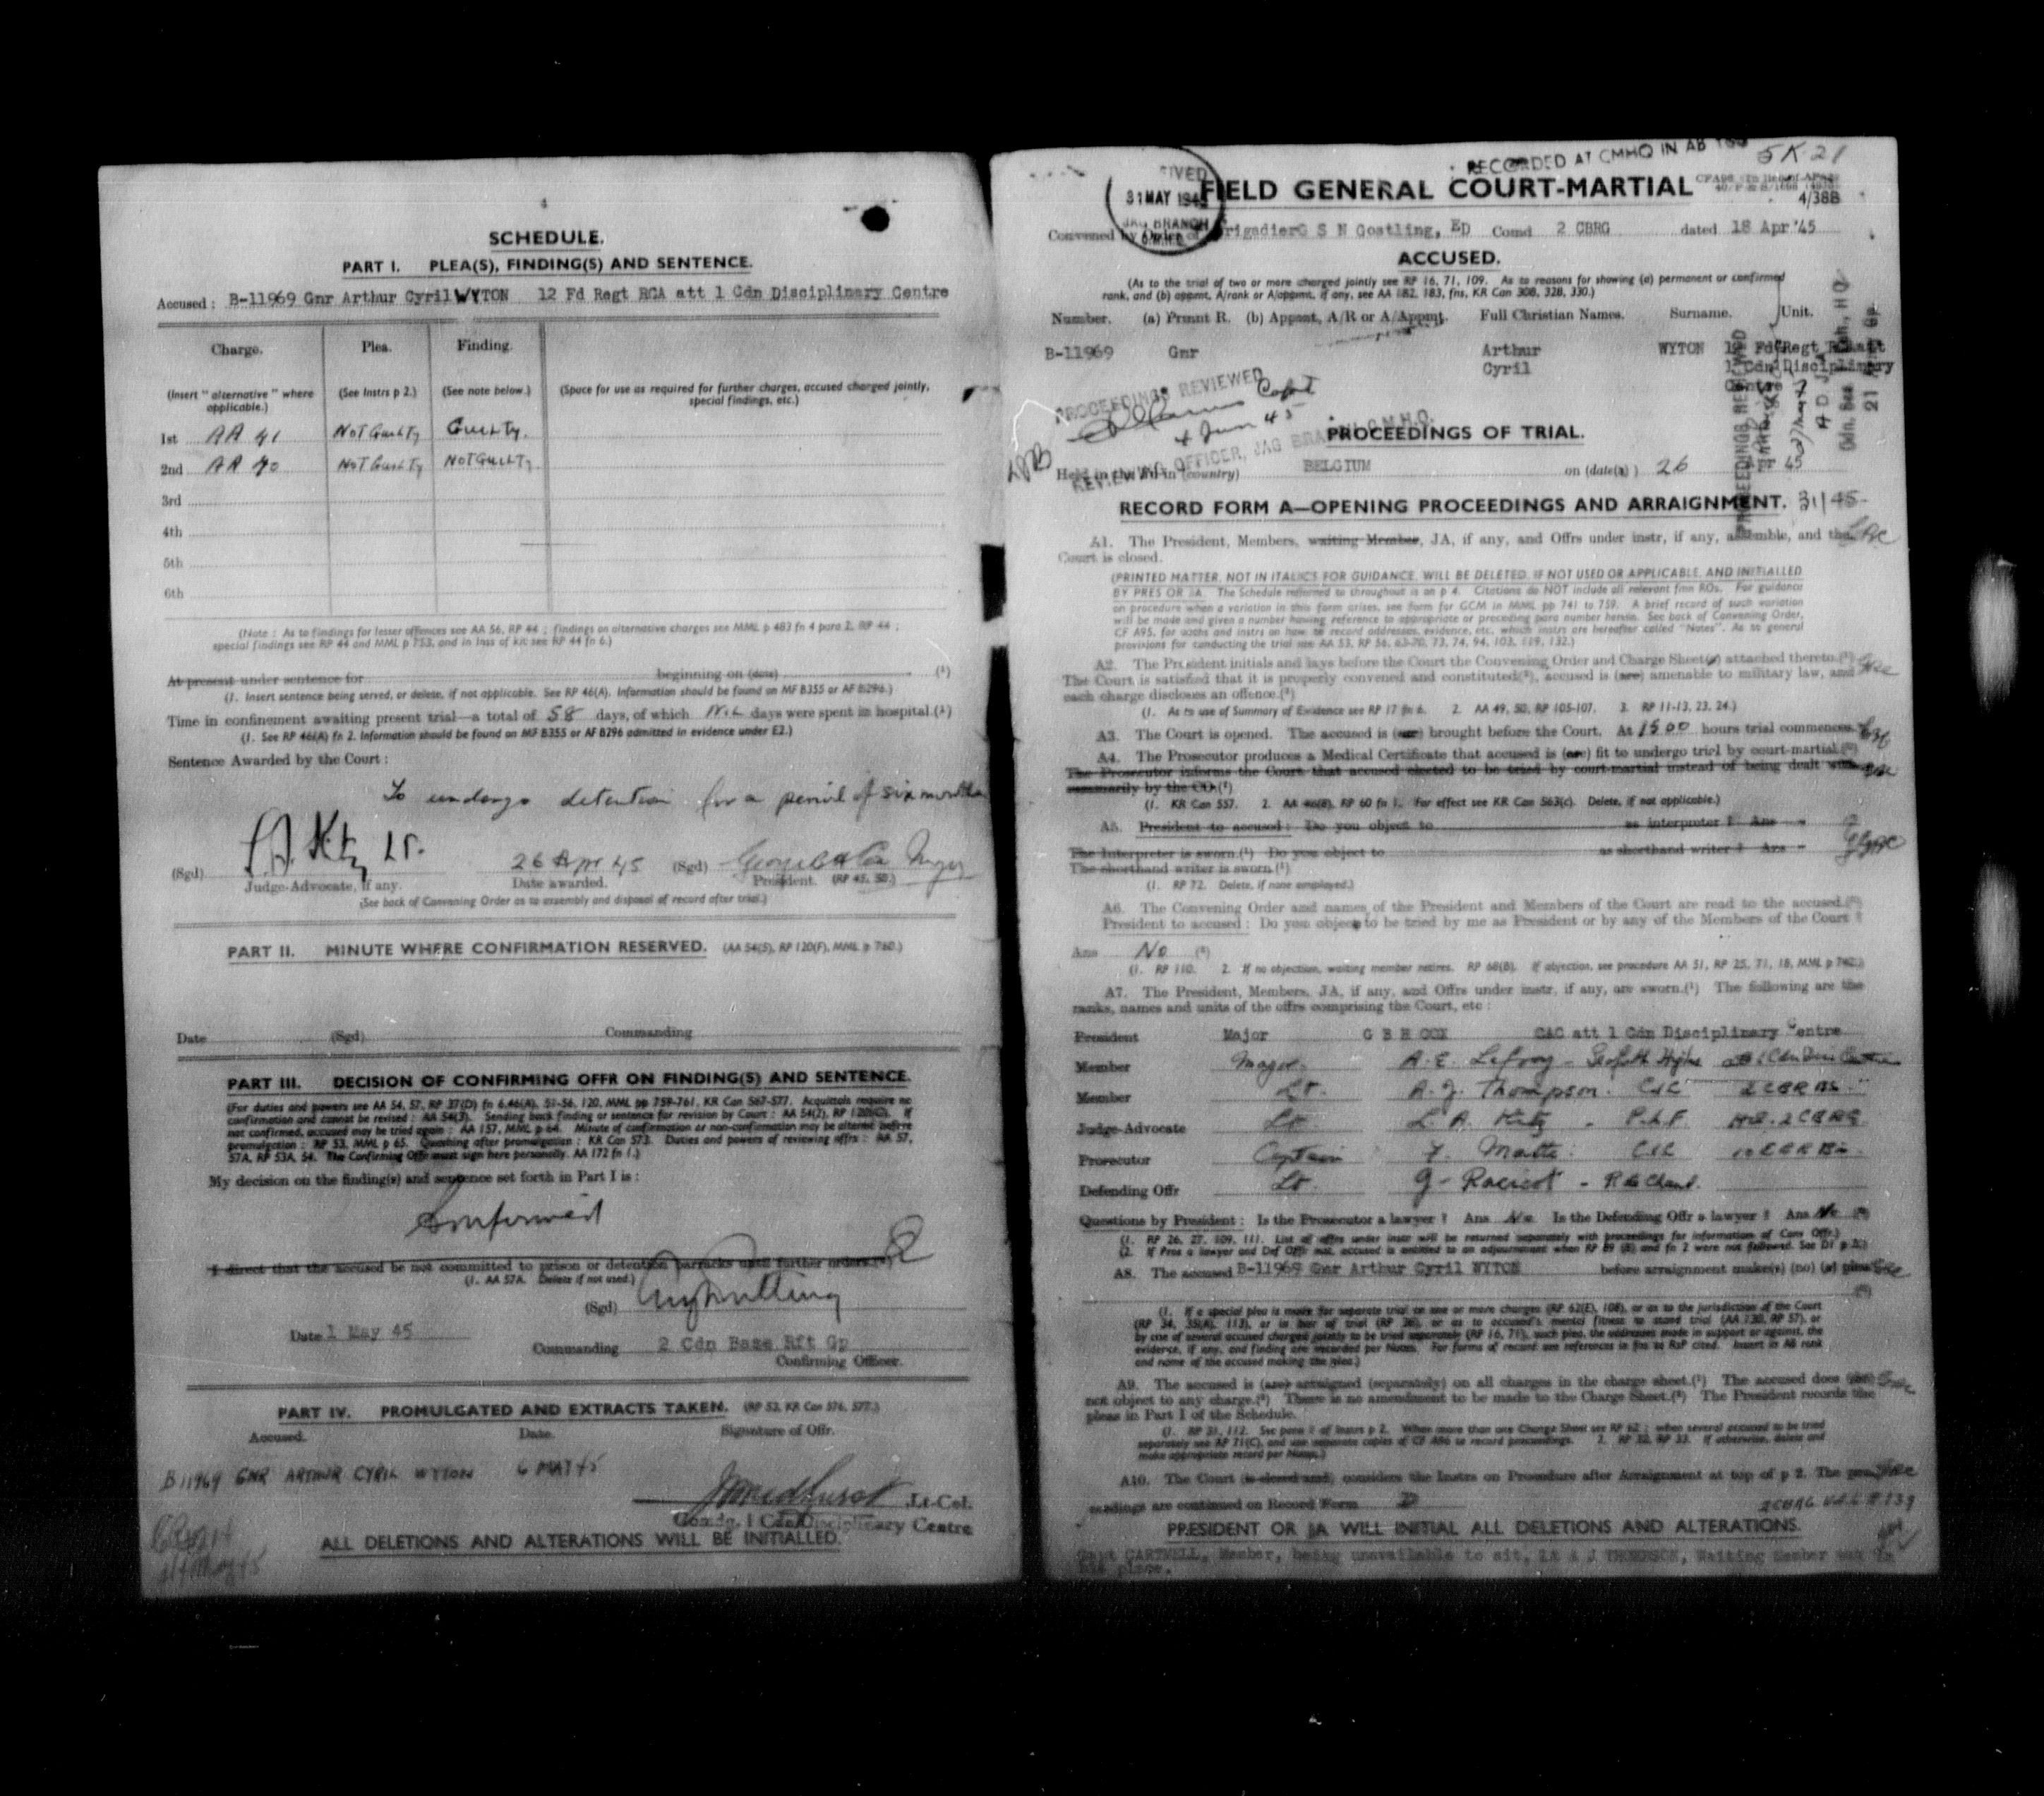 4
SCHEDULE.
PART I. PLEA(S), FINDING(S) AND SENTENCE.
Accused : B-11969 Gnr Arthur Cyril WYTON 12 Fd Regt RCA att 1 Cdn Disciplinary Centre
Charge. Plea. Finding.
(Insert " alternative " where applicable.) (See Instrs p 2.) (See note below.) (Space for use as required for further charges, accused charged jointly, special findings, etc.)
1st AA 41 Not Guilty Guilty.
2nd AA 40 Not Guilty Not Guilty.
3rd
4th
5th
6th
(Note : As to findings for lesser offences see AA 56, RP 44 ; findings on alternative charges see MML p 483 fn 4 para 2, RP 44 ;
special findings see RP 44 and MML p 753, and in loss of kit see RP 44 fn 6.)
At present under sentence for beginning on (date) (1)
(1. Insert sentence being served, or delete, if not applicable. See RP 46(A). Information should be found on MF B355 or AF B296.)
Time in confinement awaiting present trial—a total of 58 days, of which NIL days were spent in hospital.(1)
(1. See RP 46(A) fn 2. Information should be found on MF B355 or AF B296 admitted in evidence under E2.)
Sentence Awarded by the Court :
To undergo detention for a period of six months
(Sgd) Lt. 26 Apr 45 (Sgd) Major
Judge-Advocate, if any. Date awarded. President. (RP 45, 50.)
(See back of Convening Order as to assembly and disposal of record after trial.)
PART II. MINUTE WHERE CONFIRMATION RESERVED. (AA 54(5), RP 120(F), MML p 760.)
Date (Sgd) Commanding
PART III. DECISION OF CONFIRMING OFFR ON FINDING(S) AND SENTENCE.
(For duties and powers see AA 54, 57, RP 37(D) fn 6,46(A), 51-56, 120, MML pp 759-761, KR Can 567-577. Acquittals require no
confirmation and cannot be revised : AA 54(3). Sending back finding or sentence for revision by Court : AA 54(2), RP 120(C). If
not confirmed, accused may be tried again : AA 157, MML p 64. Minute of confirmation or non-confirmation may be altered before
promulgation : RP 53, MML p 65. Quashing after promulgation : KR Can 573. Duties and powers of reviewing offrs : AA 57,
57A, RP 53A, 54. The Confirming Offr must sign here personally. AA 172 fn 1.)
My decision on the finding(s) and sentence set forth in Part I is :
Confirmed
I direct that the accused be not committed to prison or detention barracks until further orders.(1)
(1. AA 57A. Delete if not used.)
(Sgd)
Date 1 May 45
Commanding 2 Cdn Base Rft Gp
Confirming Officer.
PART IV. PROMULGATED AND EXTRACTS TAKEN. (RP 53, KR Can 576, 577.)
Accused. Date. Signature of Offr.
B 11969 GNR ARTHUR CYRIL WYTON 6 MAY 45
Lt-Col.
Comdg. 1 Cdn Disciplinary Centre
ALL DELETIONS AND ALTERATIONS WILL BE INITIALLED.
RECORDED AT CMHQ IN AB
5K-21
31 MAY 1945
JAG BRANCH
FIELD GENERAL COURT-MARTIAL
4/38B
Convened by Order of Brigadier G S N Gostling, ED Comd 2 CBRG dated 18 Apr '45
ACCUSED.
(As to the trial of two or more charged jointly see RP 16, 71, 109. As to reasons for showing (a) permanent or confirmed
rank, and (b) appmt, A/rank or A/appmt, if any, see AA 182, 183, fns, KR Can 308, 328, 330.)
Number. (a) Prmnt R. (b) Appmt, A/R or A/Appmt. Full Christian Names. Surname. Unit.
B-11969 Gnr Arthur WYTON 12 Fd Regt RCA att
Cyril 1 Cdn Disciplinary
Centre
PROCEEDINGS REVIEWED
Capt
4 Jun 45
REVIEWING OFFICER, JAG BRANCH, C.M.H.Q.
PROCEEDINGS REVIEWED
PROCEEDINGS OF TRIAL.
Held in the fd in (country) BELGIUM on (date(s)) 26 Apr 45
RECORD FORM A—OPENING PROCEEDINGS AND ARRAIGNMENT.
A1. The President, Members, waiting Member, JA, if any, and Offrs under instr, if any, assemble, and the
Court is closed.
(PRINTED MATTER, NOT IN ITALICS FOR GUIDANCE, WILL BE DELETED, IF NOT USED OR APPLICABLE, AND INITIALLED
BY PRES OR JA. The Schedule referred to throughout is on p 4. Citations do NOT include all relevant fins ROs. For guidance
on procedure when a variation in this form arises, see form for GCM in MML pp 741 to 759. A brief record of such variation
will be made and given a number having reference to appropriate or preceding para number herein. See back of Convening Order,
CF A95, for oaths and instrs on how to record addresses, evidence, etc, which instrs are hereafter called "Notes". As to general
provisions for conducting the trial see AA 53, RP 56, 63-70, 73, 74, 94, 103, 119, 132.)
A2. The President initials and lays before the Court the Convening Order and Charge Sheet(s) attached thereto.(1)
The Court is satisfied that it is properly convened and constituted(2), accused is (are) amenable to military law, and
each charge discloses an offence.(3)
(1. As to use of Summary of Evidence see RP 17 fn 6. 2. AA 49, 50, RP 105-107. 3. RP 11-13, 23, 24.)
A3. The Court is opened. The accused is (are) brought before the Court. At 1500 hours trial commences.
A4. The Prosecutor produces a Medical Certificate that accused is (are) fit to undergo trial by court-martial.(2)
The Prosecutor informs the Court that accused elected to be tried by court-martial instead of being dealt with
summarily by the CO.(1)
(1. KR Can 557. 2. AA 46(8), RP 60 fn 1. For effect see KR Can 563(c). Delete, if not applicable.)
A5. President to accused : Do you object to as interpreter ? Ans
The Interpreter is sworn.(1) Do you object to as shorthand writer ? Ans
The shorthand writer is sworn.(1)
(1. RP 72. Delete, if none employed.)
A6. The Convening Order and names of the President and Members of the Court are read to the accused.(1)
President to accused : Do you object to be tried by me as President or by any of the Members of the Court ?
Ans No (2)
(1. RP 110. 2. If no objection, waiting member retires. RP 68(B). If objection, see procedure AA 51, RP 25, 71, 18, MML p 742.)
A7. The President, Members, JA, if any, and Offrs under instr, if any, are sworn.(1) The following are the
ranks, names and units of the offrs comprising the Court, etc :
President Major G B H COX CAC att 1 Cdn Disciplinary Centre
Member Major A. E. Lefroy - Seaforth Highrs
Member Lt. A. J. Thompson. CIC
Judge-Advocate Lt. L. A. Katz HQ. 2 CBRG
Prosecutor Captain F. Matte. CIC
Defending Offr Lt. G. Racicot - R de Chaud.
Questions by President : Is the Prosecutor a lawyer ? Ans No Is the Defending Offr a lawyer ? Ans No (2)
(1. RP 26, 27, 109, 111. List of offrs under instr will be returned separately with proceedings for information of Conv Offr.)
A8. The accused B-11969 Gnr Arthur Cyril WYTON before arraignment make(s) (no) (a) plea
(1. If a special plea is made for separate trial on one or more charges (RP 62(E), 108), or as to the jurisdiction of the Court
(RP 34, 35(A), 113), or in bar of trial (RP 36), or as to accused's mental fitness to stand trial (AA 130, RP 57), or
by one of several accused charged jointly to be tried separately (RP 16, 71), such plea, the addresses made in support or against, the
evidence, if any, and finding are recorded per Notes. For forms of record see references in fns to RsP cited. Insert in A8 rank
and name of the accused making the plea.)
A9. The accused is (are) arraigned (separately) on all charges in the charge sheet.(1) The accused does (do)
not object to any charge.(2) There is no amendment to be made to the Charge Sheet.(2) The President records the
pleas in Part I of the Schedule.
(1. RP 31, 112. See para 1 of Instrs p 2. When more than one Charge Sheet see RP 62 ; when several accused to be tried
separately see RP 71(C), and use separate copies of CF A96 to record proceedings. 2. RP 32, RP 33. If otherwise, delete and
make appropriate record per Notes.)
A10. The Court (is closed and) considers the Instrs on Procedure after Arraignment at top of p 2. The pro-
ceedings are continued on Record Form D
PRESIDENT OR JA WILL INITIAL ALL DELETIONS AND ALTERATIONS.
Capt CARTWELL, Member, being unavailable to sit, Lt A J THOMPSON, Waiting Member sat in
his place.